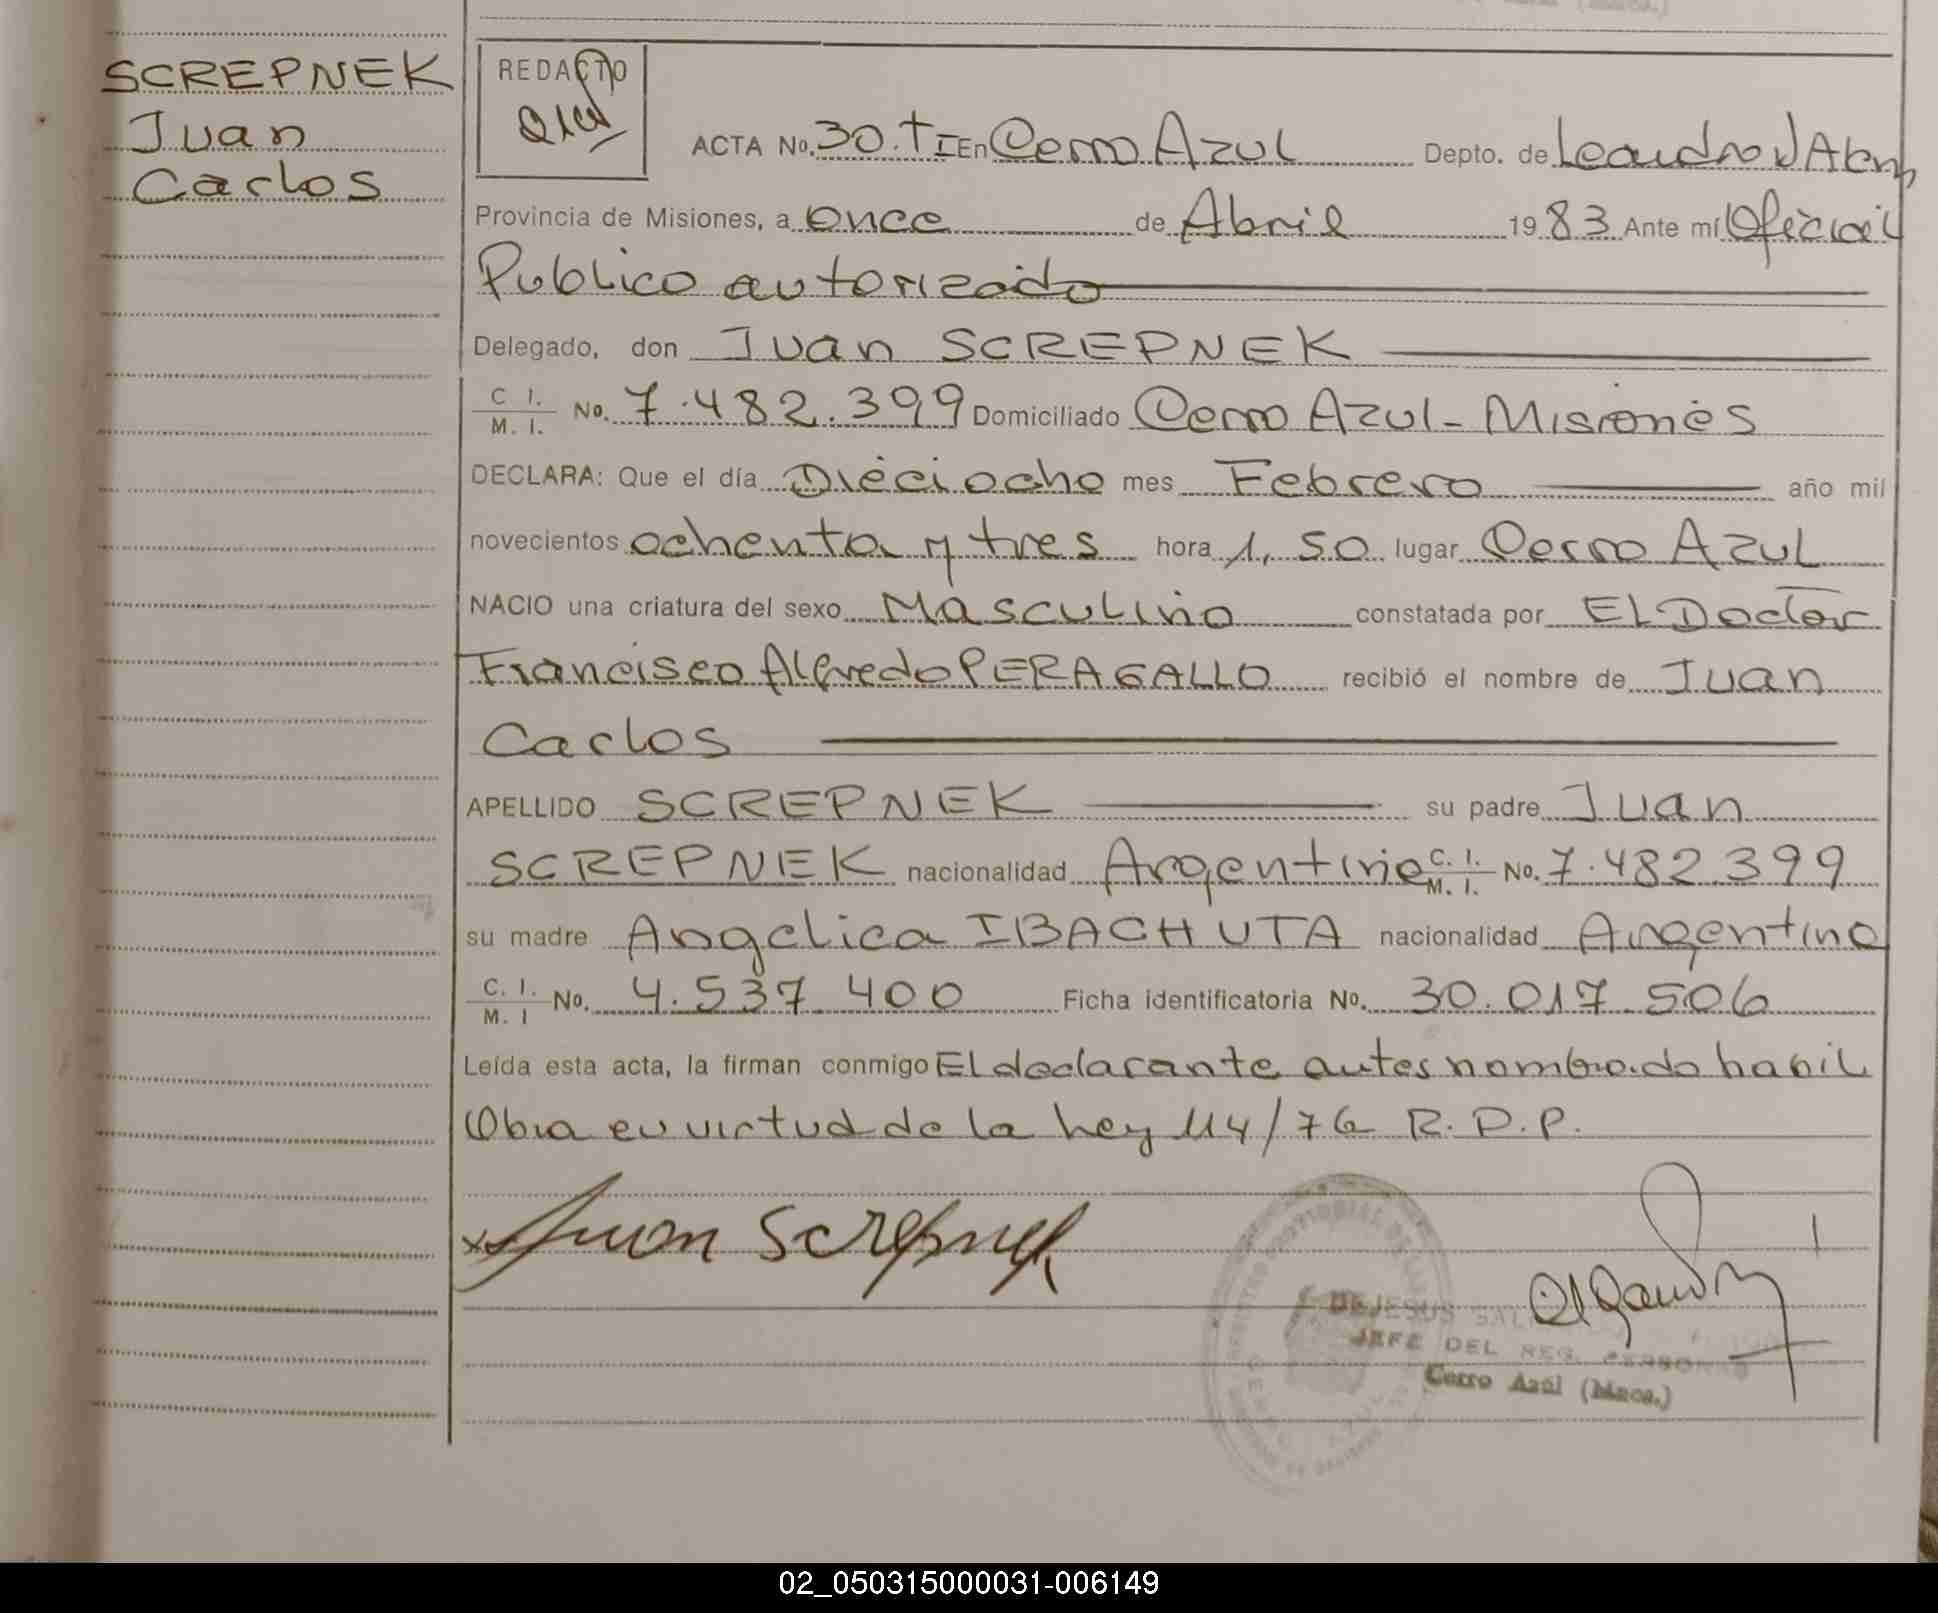 SCREPNEK
Juan
Carlos
REDACTO
ACTA No. 30. T I En Cerro Azul Depto. de Leandro N Alem
Provincia de Misiones, a once de Abril 1983 Ante mí Oficial
Publico autorizado
Delegado, don Juan SCREPNEK
C. I. M. I. No. 7.482.399 Domiciliado Cerro Azul - Misiones
DECLARA: Que el día Dieciocho mes Febrero año mil
novecientos ochenta y tres hora 1,50 lugar Cerro Azul
NACIO una criatura del sexo Masculino constatada por EL Doctor
Francisco Alfredo PERAGALLO recibió el nombre de Juan
Carlos
APELLIDO SCREPNEK su padre Juan
SCREPNEK nacionalidad Argentino C. I. M. I. No. 7.482.399
su madre Angelica IBACHUTA nacionalidad Argentina
C. I. M. I No. 4.537.400 Ficha identificatoria No. 30.017.506
Leída esta acta, la firman conmigo El declarante antes nombrado habil
Obra en virtud de la Ley 114/76 R. D. P.
Juan Screpnek
DEJESUS
JEFE DEL REG. PERSONAS
Cerro Azul (Mnes.)
02_050315000031-006149